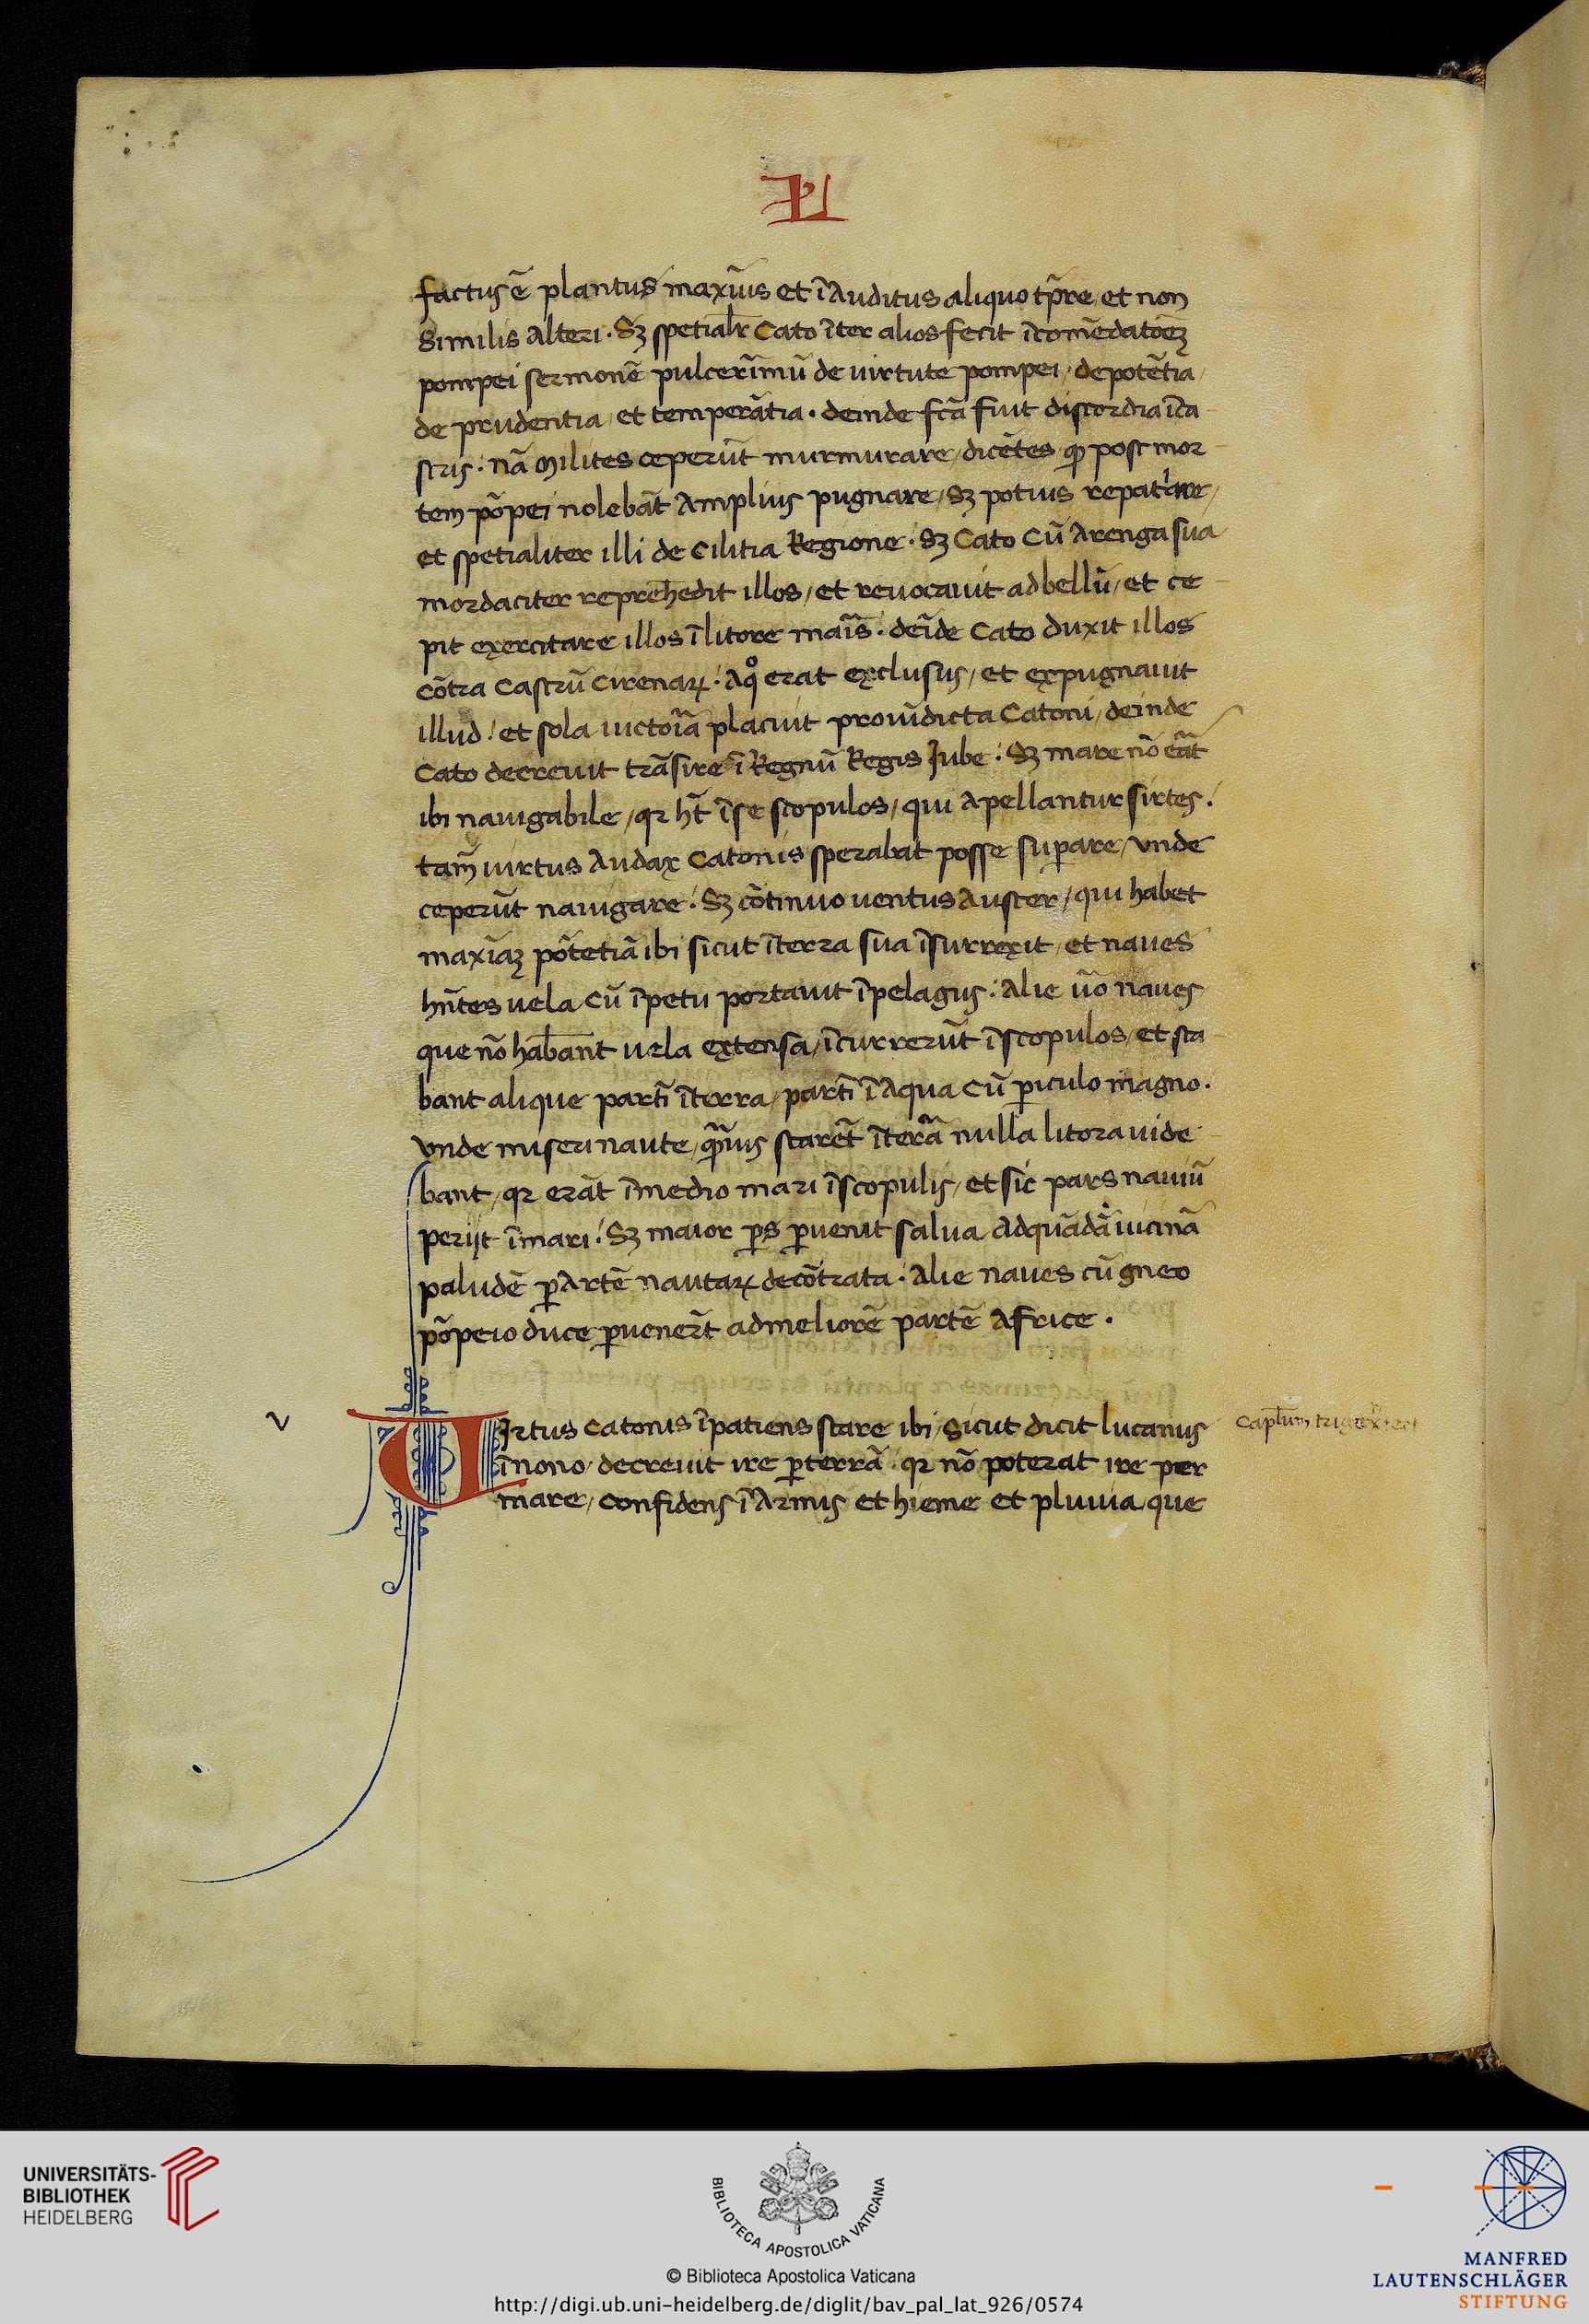 factus ē plantus maxīus et ī auditus aliquo tp̄re / et non
similis alteri · Sꝫ spetialr̄ Cato īter alios fecit ī com̄edatoēꝫ
pompei sermonē pulcerīmū de uirtute pompei / de potētia /
de prudentia / et temperātia · deinde fc̄a fuit discordia ī ca
stris · nā milites ceperūt murmurare / dicētes / ꝙ post mor
tem pōpei nolebāt Amplius pugnare / Sꝫ potius repatͥare /
et spetialiter illi de Cilitia Regione · Sꝫ Cato Cū Arenga sua
mordaciter reprehēdit illos / et reuocauit ad bellū / et ce
pit exercitare illos ī litore mais̄ · deīde Cato duxit illos
cōtra Castrū Cirenaꝝ · A qͦ erat exclusus / et expugnauit
illud · et sola uictoīa placuit pro uīdicta Catoni / deinde
Cato decreuit trāsire ī Regnū Regis Jube · Sꝫ mare nō eāt
ibi nauigabile / qꝛ ht̄ ī se scopulos / qui Apellantur sirtes ·
tam̄ uirtus Audax Catonis sperabat posse suꝑare / vnde
ceperūt nauigare · Sꝫ cōtinuo uentus Auster / qui habet
maxīaꝫ potētiā ibi sicut ī terra sua īsurrexit / et naues
hn̄tes uela Cū īpetu portauit ī pelagus · Alie ūo naues
que nō hab̄ant uela extensa / īcurrerūt ī scopulos / et sta
bant alique partī ī terra / partī ī Aqua Cū ꝑiculo magno ·
vnde miseri naute / ꝙ̄uis starēt ī terā nulla litora uide
bant / qꝛ erāt ī medio mari ī scopulis / et sic pars nauiū
perijt ī mari · Sꝫ maior ꝑs ꝑuenit salua Ad quādā uicinā
paludē ꝑ Artē nautaꝝ de cōtrata · Alie naues cū gneo
pōpeio duce ꝑuener̄t ad meliorē partē Africe ·
v
VIrtus Catonis īpatiens stare ibi / sicut dicit lucanus
ī nono / decreuit ire ꝑ terrā · qꝛ nō poterat ire per
mare / confidens ī Armis et hieme et pluuia / que
Capl̄um
UNIVERSITÄTS-
BIBLIOTHEK
HEIDELBERG
BIBLIOTECA APOSTOLICA VATICANA
© Biblioteca Apostolica Vaticana
http://digi.ub.uni-heidelberg.de/diglit/bav_pal_lat_926/0574
MANFRED
LAUTENSCHLÄGER
STIFTUNG